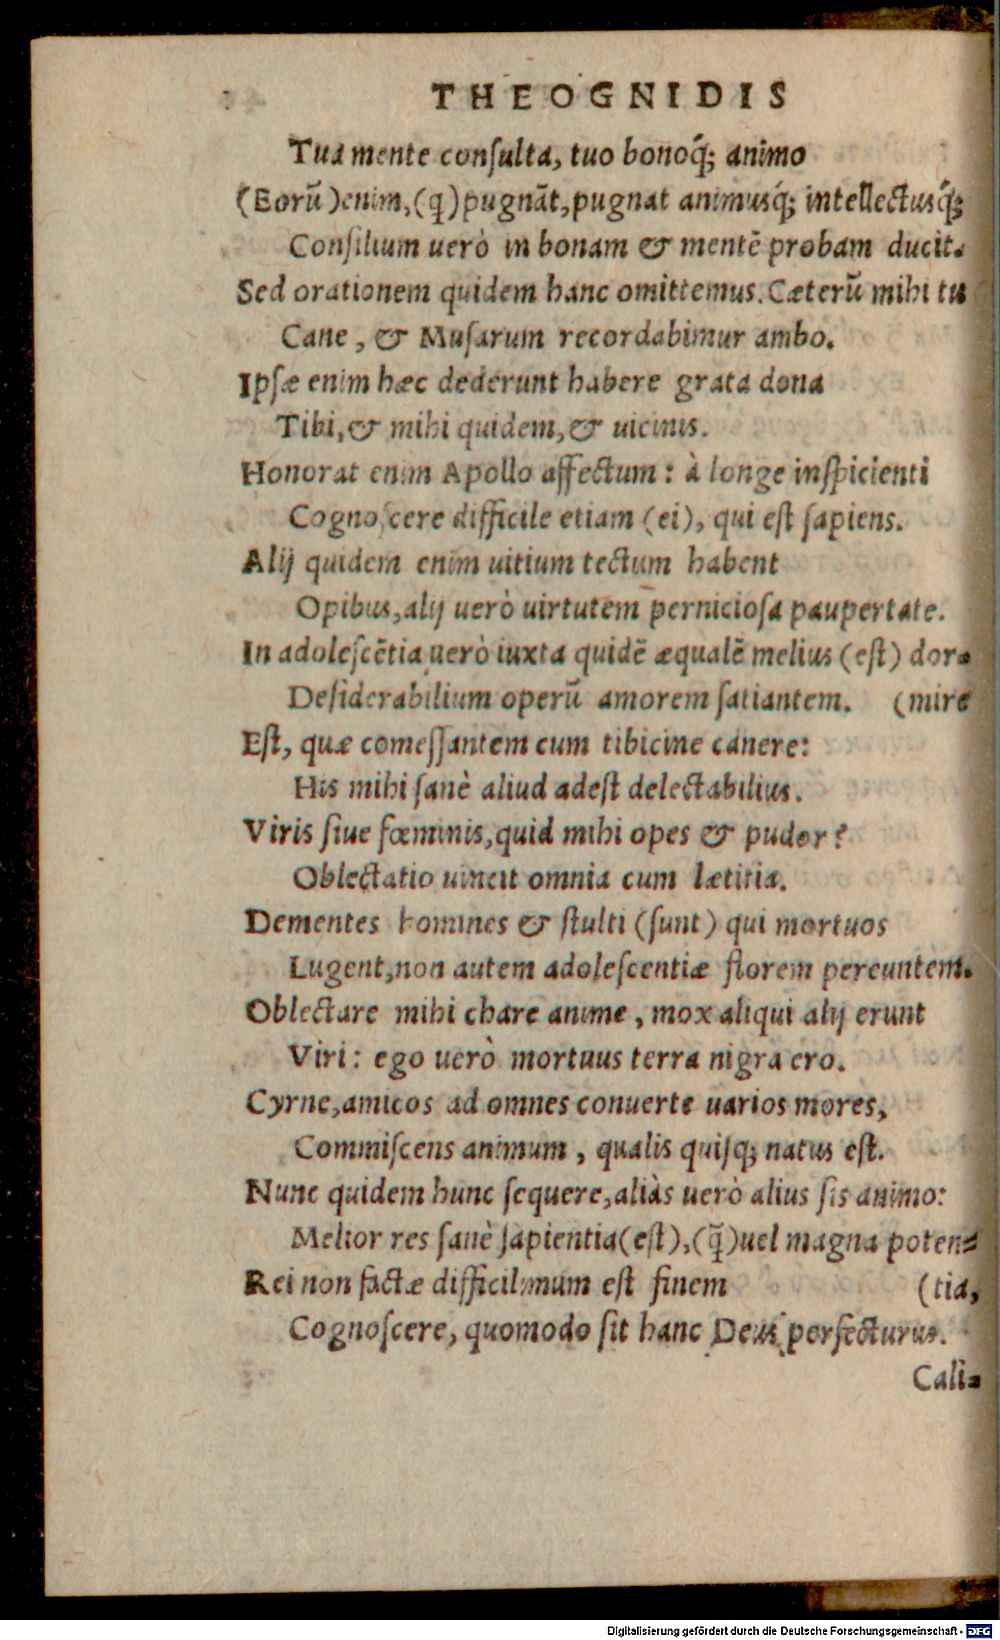 THEOGNIDIS
Tua mente conſulta, tuo bonoq́; animo
(Eorũ)enim,(q̃)pugnãt,pugnat animusq́; intellectusq́;
Conſilium uerò in bonam & mentẽ probam ducit.
Sed orationem quidem hanc omittemus. Cæterũ mihi tu
Cane, & Muſarum recordabimur ambo.
Ipſæ enim hæc dederunt habere grata dona
Tibi,& mihi quidem,& uicinis.
Honorat enim Apollo affectum: à longe inſpicienti
Cognoſcere difficile etiam (ei), qui eſt ſapiens.
Alij quidem enim uitium tectum habent
Opibus,alij uerò uirtutem pernicioſa paupertate.
In adoleſcẽtia uerò iuxta quidẽ æqualẽ melius (eſt) dor-
Deſiderabilium operũ amorem ſatiantem. (mire
Eſt, quæ comeſſantem cum tibicine canere:
His mihi ſanè aliud adeſt delectabilius.
Viris ſiue fœminis,quid mihi opes & pudor?
Oblectatio uincit omnia cum lætitia.
Dementes homines & ſtulti (ſunt) qui mortuos
Lugent,non autem adoleſcentiæ florem pereuntem.
Oblectare mihi chare anime, mox aliqui alij erunt
Viri: ego uerò mortuus terra nigra ero.
Cyrne,amicos ad omnes conuerte uarios mores,
Commiſcens animum, qualis quiſq; natus eſt.
Nunc quidem hunc ſequere,aliàs uerò alius ſis animo:
Melior res ſanè ſapientia(eſt),(q̃)uel magna poten-
Rei non factæ difficilimum eſt finem (tia,
Cognoſcere, quomodo ſit hanc Deus perfecturus.
Cali-
Digitalisierung gefördert durch die Deutsche Forschungsgemeinschaft - DFG